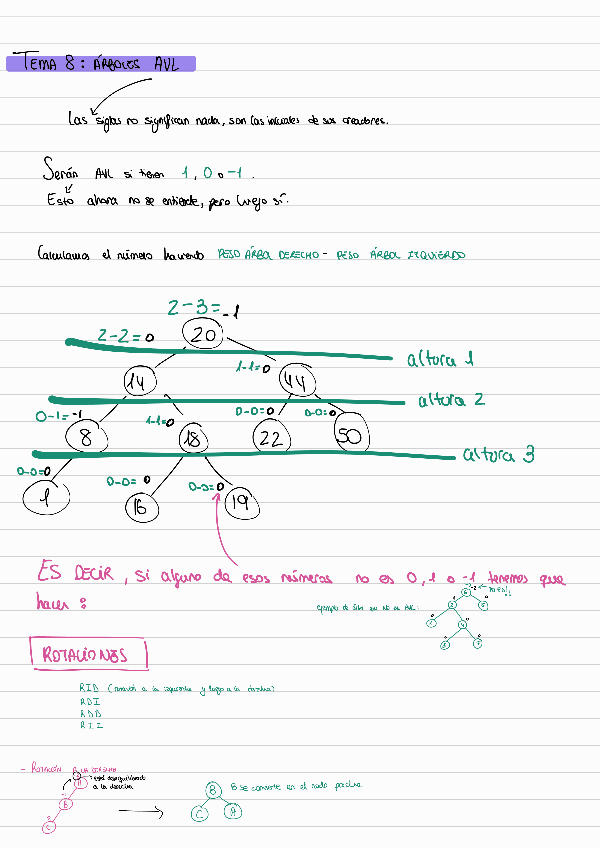 TEMA 8: ÁRBOLES AVL
Las siglas no significan nada, son las iniciales de sus creadores.
Serán AVL si tienen 1, 0 o -1.
Esto ahora no se entiende, pero luego sí.
Calculamos el número haciendo PESO ÁRBOL DERECHO - PESO ÁRBOL IZQUIERDO
2-3=-1
2-2=0 20
altura 1
1-1=0
14 44
altura 2
0-1=-1 1-1=0 0-0=0 0-0=0
8 18 22 50
altura 3
0-0=0 0-0=0 0-0=0
1 16 19
ES DECIR, si alguno de esos números no es 0, 1 o -1 tenemos que
hacer:
Ejemplo de árbol que NO es AVL:
ROTACIONES
RID (rotación a la izquierda y luego a la derecha)
RDI
RDD
RII
- ROTACIÓN A LA DERECHA
está desequilibrado
a la derecha
A
B
C
B B se convierte en el nodo padre
C A